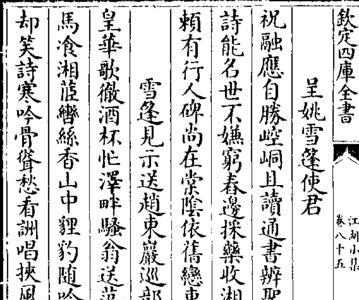 欽定四庫全書
江湖小集
卷八十五
呈姚雪篷使君
祝融應自勝崆峒且讀通書辨聖
詩能名世不嫌窮舂邊採藥收湘
賴有行人碑尚在棠陰依舊戀車
雪篷見示送趙東巖巡部
皇華歌徹酒杯忙澤畔騷翁送范
馬飡湘蓝轡絲香山中貍豹随吟
却笑詩寒吟骨聳愁看詶唱挾風